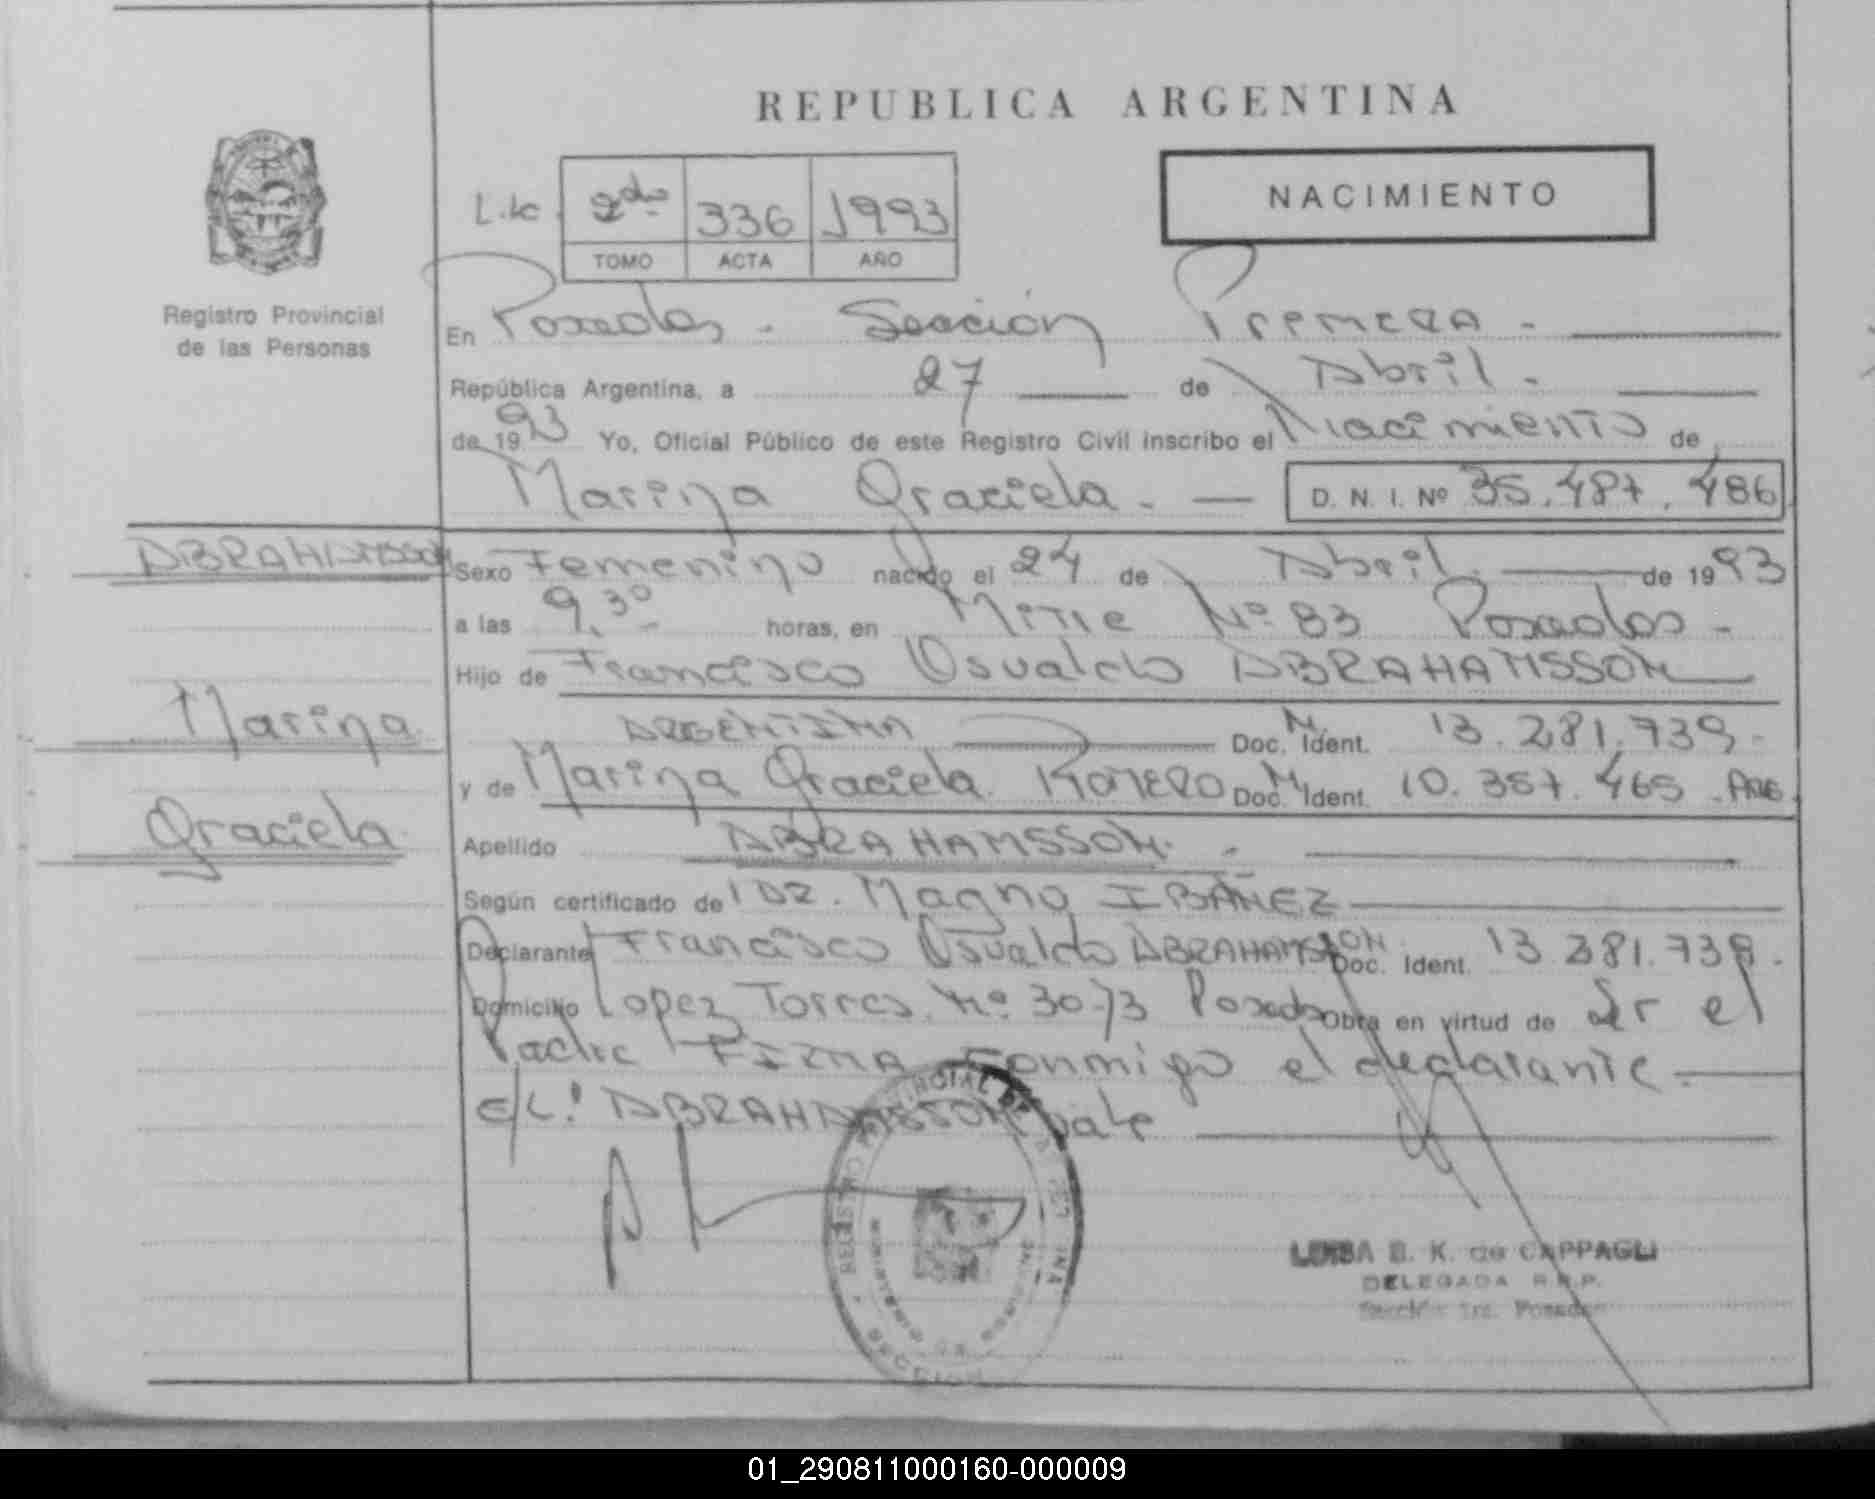 REPUBLICA ARGENTINA
NACIMIENTO
2do 336 1993
TOMO ACTA AÑO
Registro Provincial
de las Personas
En Posadas - Sección Primera -
República Argentina, a 27 de Abril -
de 1993 Yo, Oficial Público de este Registro Civil inscribo el Nacimiento de
Marina Graciela - D. N. I. Nº 35.487.486
ABRAHAMSSON
Marina
Graciela
Sexo Femenino nacido el 24 de Abril de 1993
a las 9,30 horas, en Mitre Nº 83 Posadas -
Hijo de Francisco Osvaldo ABRAHAMSSON
ARGENTINA Doc. N. Ident. 13.281.739 -
y de Marina Graciela ROMERO Doc. N. Ident. 10.357.465 - ARG.
Apellido ABRAHAMSSON. -
Según certificado de DR. Magno IBAÑEZ
Declarante Francisco Osvaldo ABRAHAMSSON Doc. Ident. 13.281.739 -
Domicilio Lopez Torres Nº 3073 Posadas Obra en virtud de Ser el
Padre FIRMA conmigo el declarante -
E/L: ABRAHAMSSON Vale
LUISA B. K. de CAPPAGLI
DELEGADA R.P.P.
Sección 1ra. Posadas
01_290811000160-000009